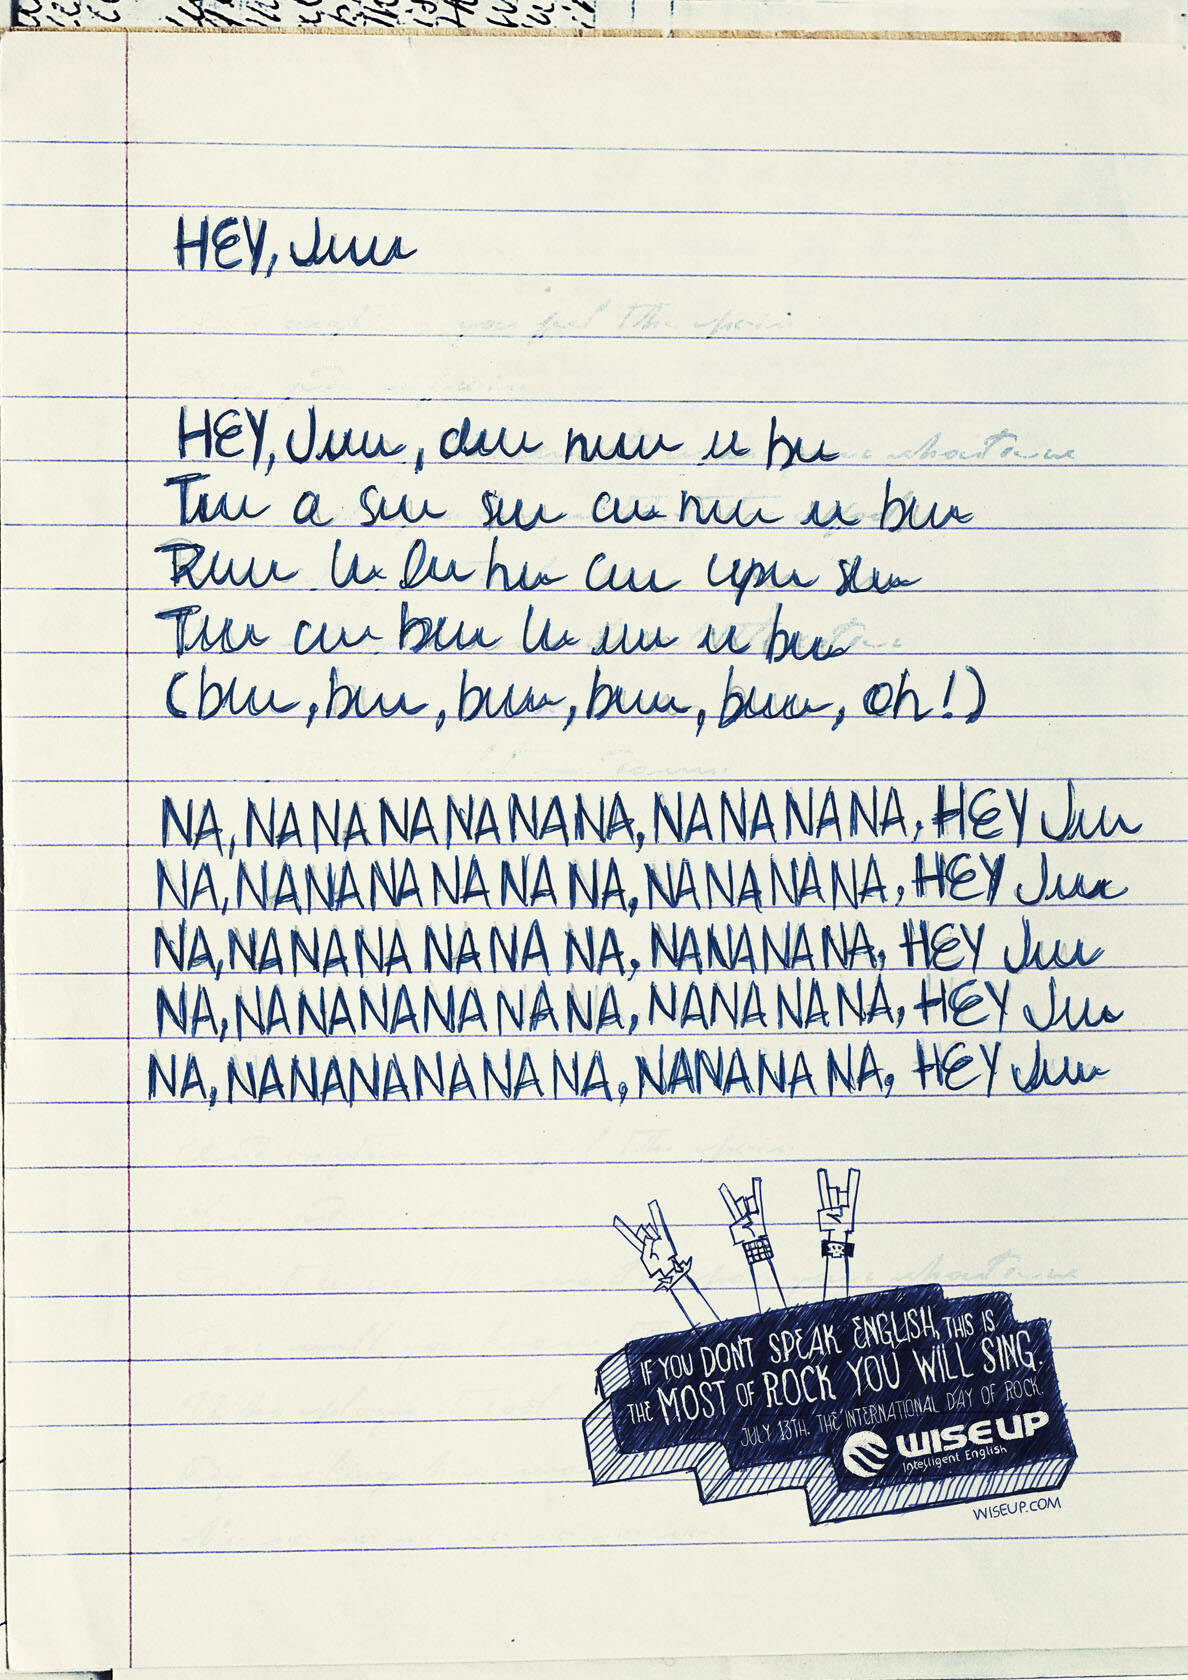 HEY, Juuu
HEY, Juuu, duu nuuu u bu
Tuu a suu suu cu nuu u buu
Ruuu lu lu hu cuu upuu suu
Tuu cu buu lu uu u buu
(buu, buu, buuu, buuu, buuu, oh!)
NA, NA NA NA NA NA NA, NA NA NA NA, HEY Juu
NA, NA NA NA NA NA NA, NA NA NA NA, HEY Juu
NA, NA NA NA NA NA NA, NA NA NA NA, HEY Juu
NA, NA NA NA NA NA NA, NA NA NA NA, HEY Juu
NA, NA NA NA NA NA NA, NA NA NA NA, HEY Juu
IF YOU DON'T SPEAK ENGLISH, THIS IS
THE MOST OF ROCK YOU WILL SING.
JULY 13TH. THE INTERNATIONAL DAY OF ROCK
WISE UP
Intelligent English
WISEUP.COM